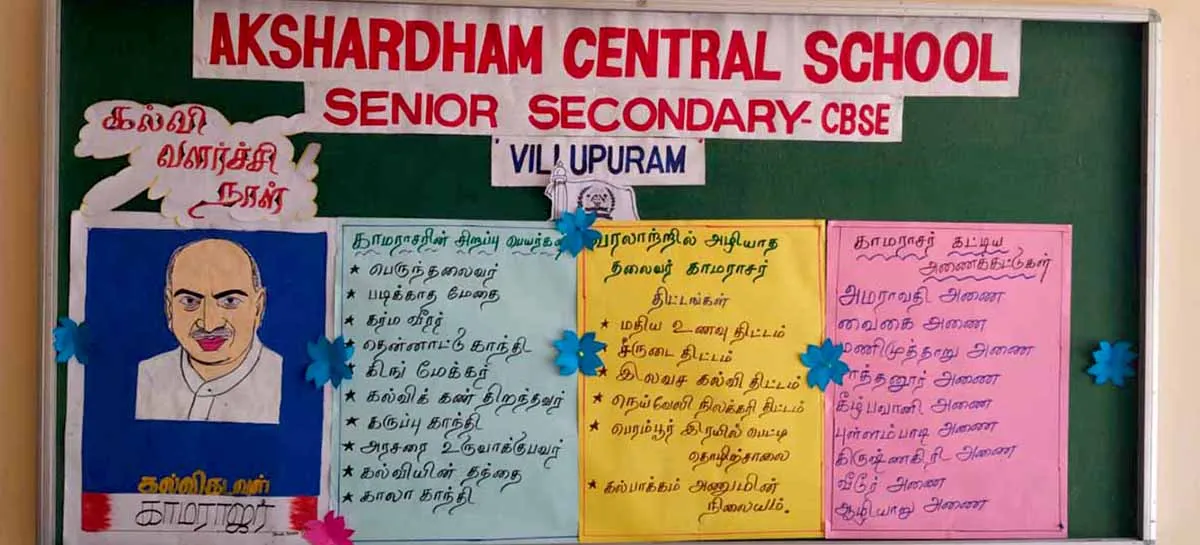 AKSHARDHAM CENTRAL SCHOOL
SENIOR SECONDARY-CBSE
VILLUPURAM
கல்வி
வளர்ச்சி
நாள்
கல்வி
காமராஜர்
காமராசரின் சிறப்பு
★ பெருந்தலைவர்
★ படிக்காத மேதை
★ கர்ம வீரர்
★ தென்னாட்டு காந்தி
★ கிங் மேக்கர்
★ கல்விக் கண் திறந்தவர்
★ கருப்பு காந்தி
★ அரசரை உருவாக்குபவர்
★ கல்வியின் தந்தை
★ காலா காந்தி
வரலாற்றில் அழியாத
தலைவர் காமராசர்
திட்டங்கள்
★ மதிய உணவு திட்டம்
★ சீருடை திட்டம்
★ இலவச கல்வி திட்டம்
★ நெய்வேலி நிலக்கரி திட்டம்
★ பெரம்பூர் இரயில் பெட்டி
தொழிற்சாலை
★ கல்பாக்கம் அணுமின்
நிலையம்.
காமராசர் கட்டிய
அணைக்கட்டுகள்
அமராவதி அணை
வைகை அணை
மணிமுத்தாறு அணை
அணை
கீழ்பவானி அணை
புள்ளம்பாடி அணை
கிருஷ்ணகிரி அணை
வீடூர் அணை
ஆழியாறு அணை